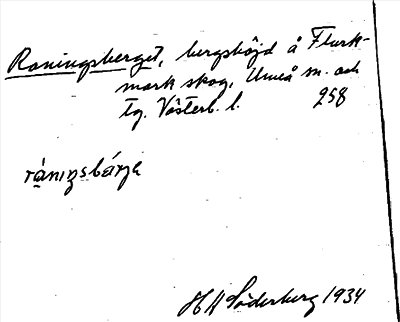 Roningsberget, bergshöjd å Flurk-
mark skog, Umeå sn. och
tg. Västerb. l. 258
råningsbärje
H H Söderberg 1934